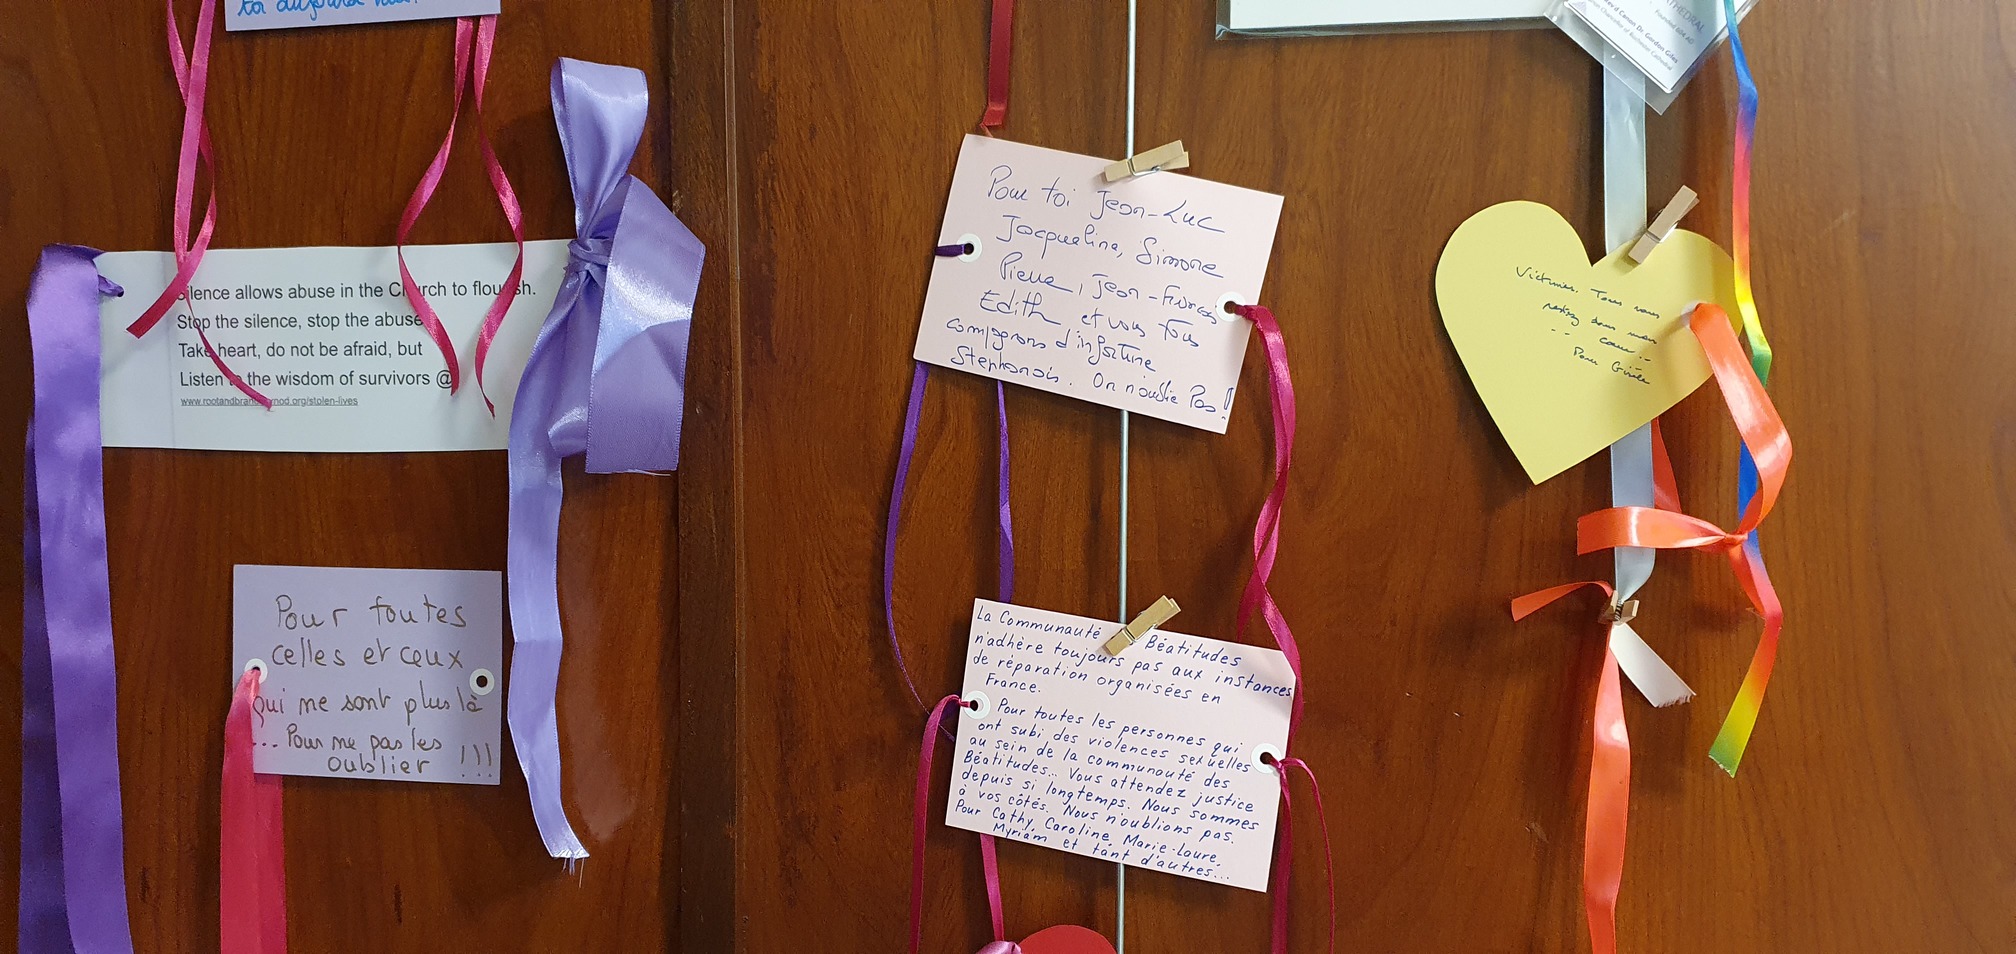 toi aujourd'hui!
Silence allows abuse in the Church to flourish.
Stop the silence, stop the abuse
Take heart, do not be afraid, but
Listen to the wisdom of survivors @
www.rootandbranchsynod.org/stolen-lives
Pour toutes
celles et ceux
qui ne sont plus là
... Pour ne pas les
oublier !!!
Pour toi Jean-Luc
Jacqueline, Simone
Pierre, Jean-François
Edith et vous tous
compagnons d'infortune
Stéphanois. On n'oublie Pas!
La Communauté Béatitudes
n'adhère toujours pas aux instances
de réparation organisées en
France.
Pour toutes les personnes qui
ont subi des violences sexuelles
au sein de la communauté des
Béatitudes... Vous attendez justice
depuis si longtemps. Nous sommes
à vos côtés. Nous n'oublions pas.
Pour Cathy, Caroline, Marie-Laure,
Myriam et tant d'autres...
CATHEDRAL
Founded 604 AD
Rev'd Canon Dr Gordon Giles
Canon Chancellor of Rochester Cathedral
Victimes. Tous vous
restez dans mon
coeur...
Pour Gisèle